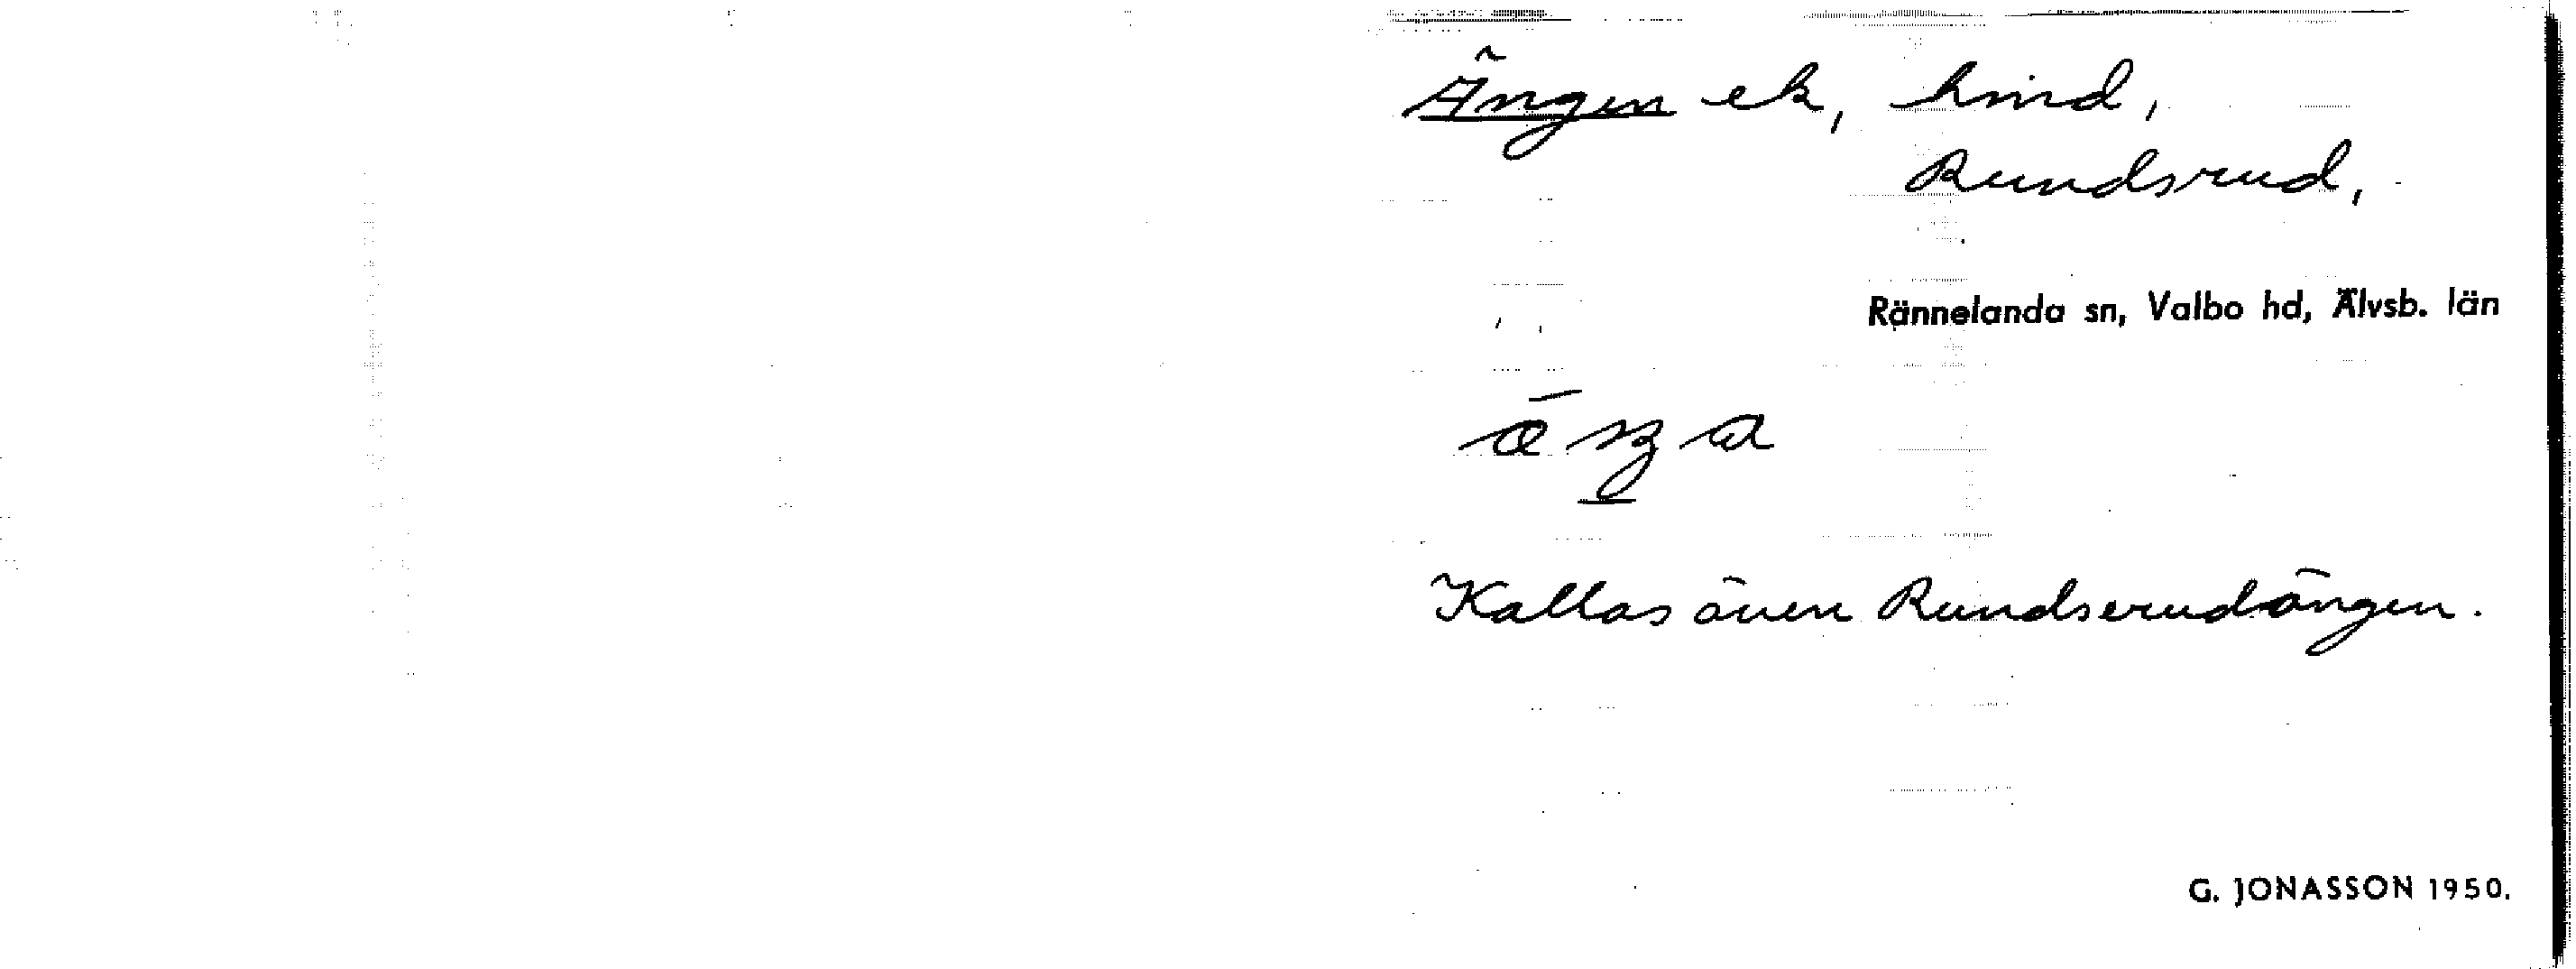 Ängen ek, hmd,
Rundsrud,
Rännelanda sn, Valbo hd, Älvsb. län
Kallas även Rundserudängen.
G. JONASSON 1950.